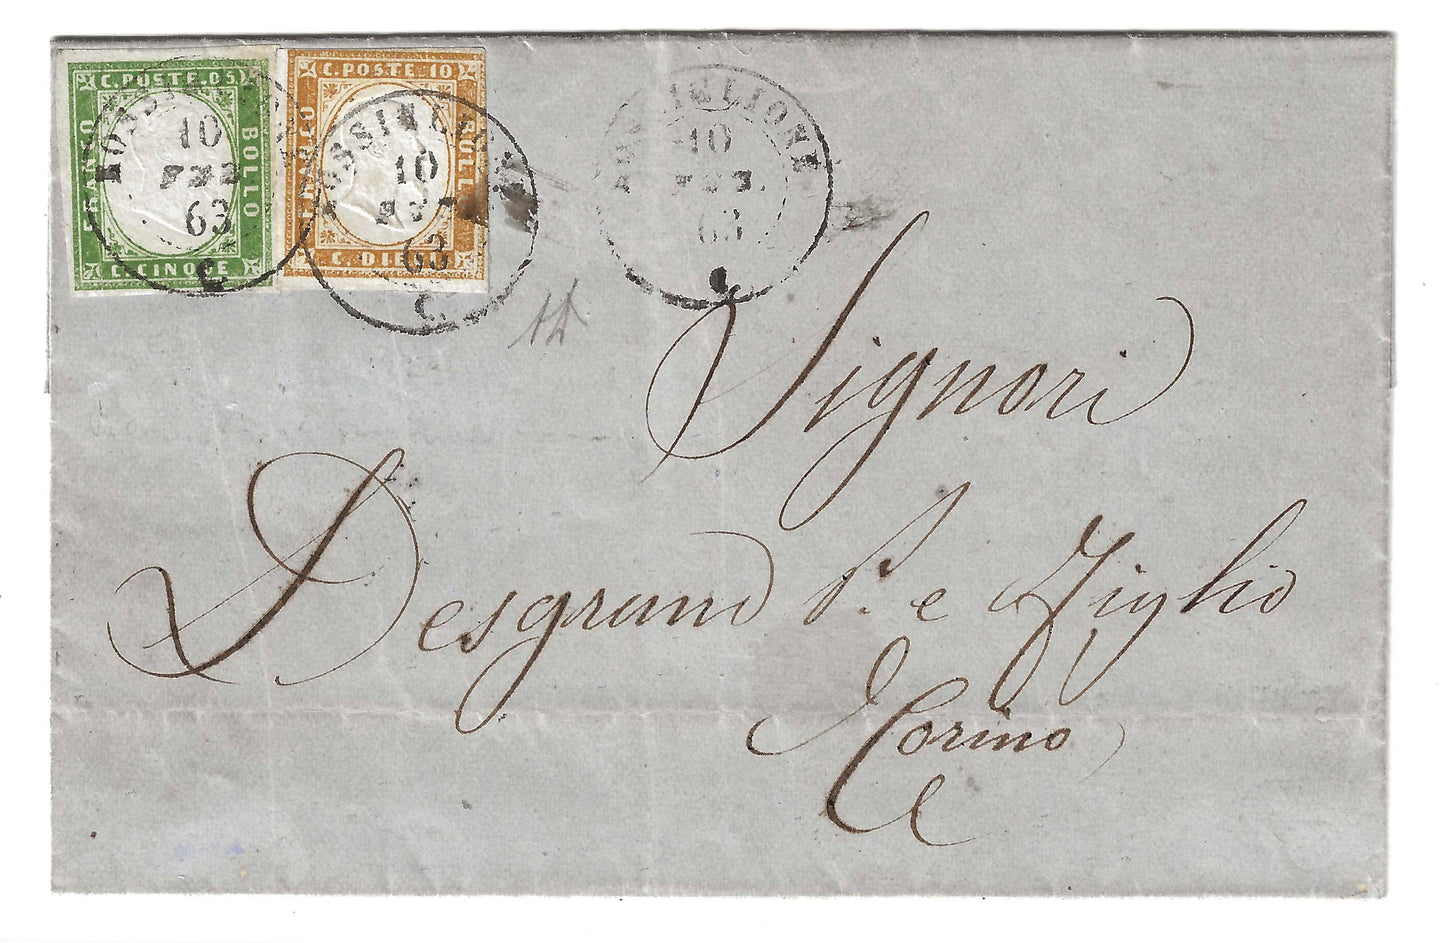 C. POSTE. 05
FRANCO
BOLLO
C. CINQVE
C. POSTE. 10
FRANCO
BOLLO
C. DIECI
10
FEB
63
C.
10
FEB
63
C.
10
FEB.
63
C
Signori
Desgrand P. e Figlio
Torino